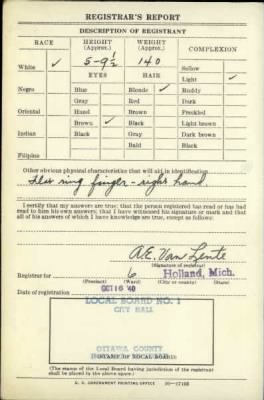 REGISTRAR'S REPORT
DESCRIPTION OF REGISTRANT
RACE HEIGHT (Approx.) WEIGHT (Approx.) COMPLEXION
White ✓ 5-9½ 140 Sallow
EYES HAIR Light ✓
Negro Blue Blonde ✓ Ruddy
Gray Red Dark
Oriental Hazel Brown Freckled
Brown ✓ Black Light brown
Indian Black Gray Dark brown
Bald Black
Filipino
Other obvious physical characteristics that will aid in identification
ring finger - right hand
I certify that my answers are true; that the person registered has read or has had
read to him his own answers; that I have witnessed his signature or mark and that
all of his answers of which I have knowledge are true, except as follows:
A.E. Van Lente
(Signature of registrar)
Registrar for 6 Holland, Mich.
(Precinct) (Ward) (City or county) (State)
Date of registration OCT 16 '40
LOCAL BOARD NO. 1
CITY HALL
OTTAWA COUNTY
(STAMP OF LOCAL BOARD)
(The stamp of the Local Board having jurisdiction of the registrant
shall be placed in the above space.)
U. S. GOVERNMENT PRINTING OFFICE 16-17105